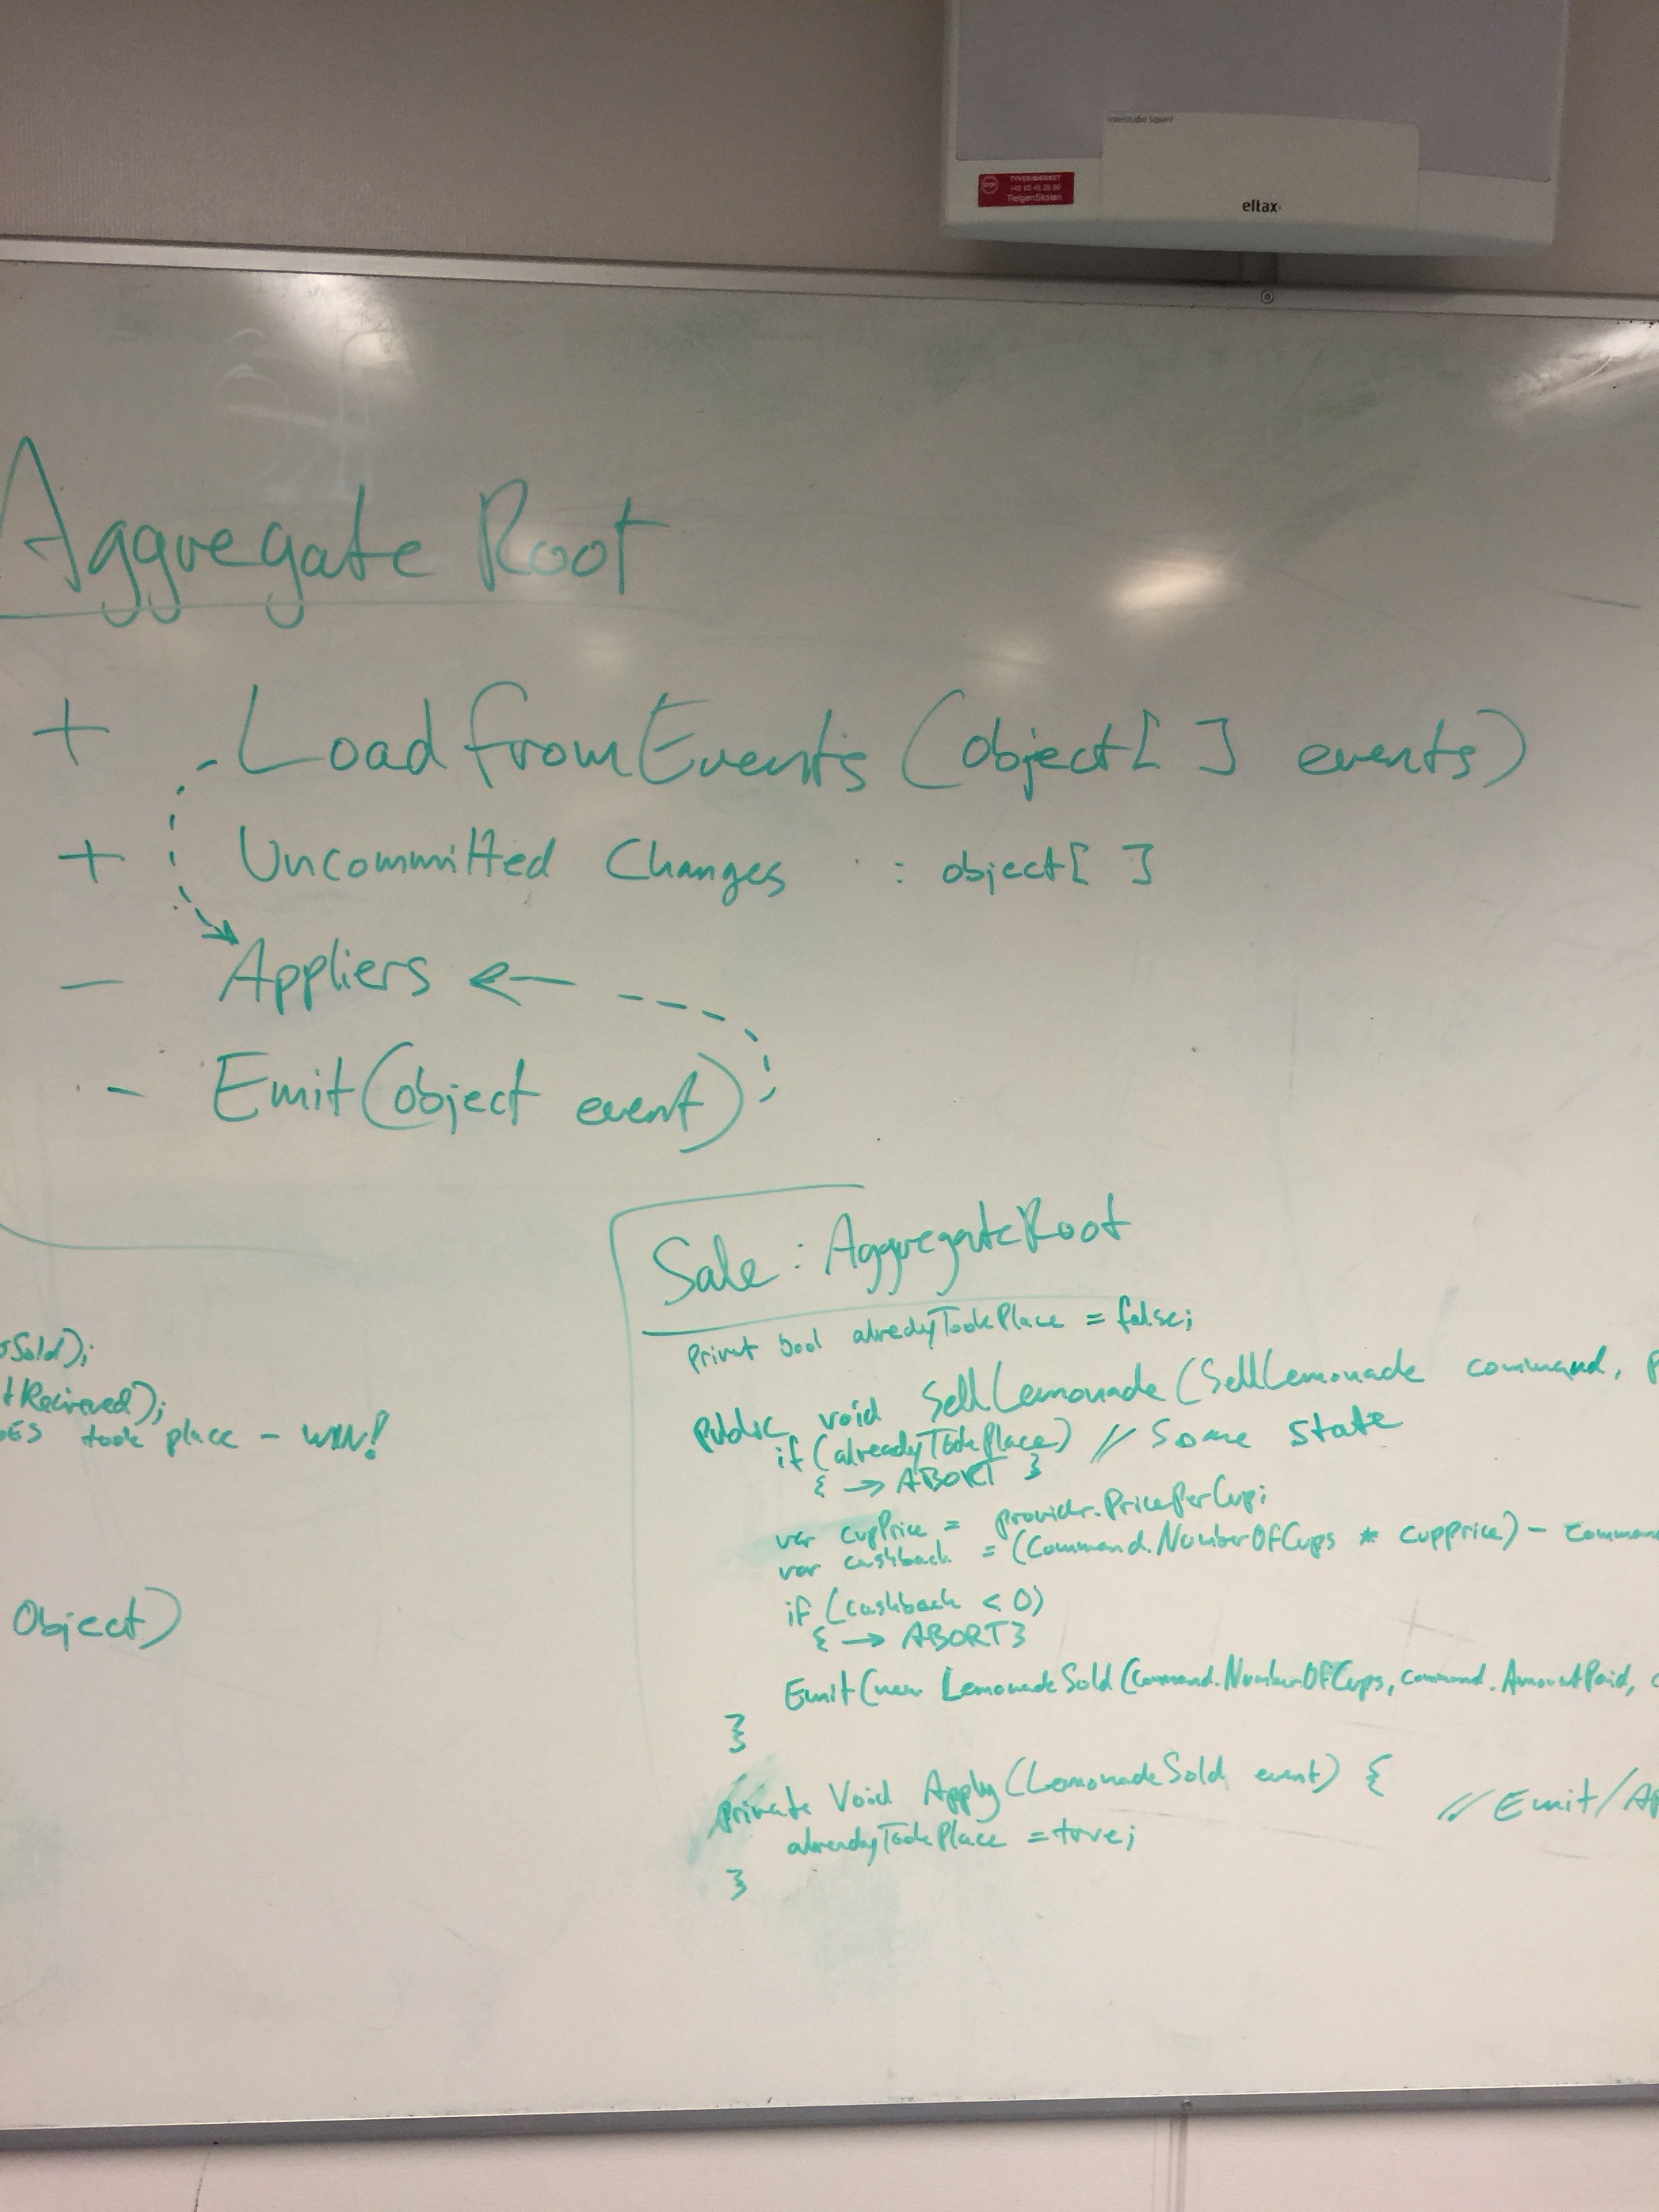 interstudio Square
TYVERIMÆRKET
TietgenSkolen
eltax
Aggregate Root
+ LoadfromEvents (object[ ] events)
+ Uncommitted Changes : object[ ]
- Appliers
- Emit(object event)
Sale : AggregateRoot
privat bool alredyTookPlace = false;
public void SellLemonade (SellLemonade command, P
if (alreadyTookPlace) // Some state
{ → ABORT }
var cupPrice = provider.PricePerCup;
var cashback = (Command.NumberOfCups * cupprice) - comman
if (cashback < 0)
{ → ABORT}
Emit(new LemonadeSold(Command.NumberOfCups, command.AmountPaid, c
}
private Void Apply(LemonadeSold event) {
// Emit/Ap
alreadyTookPlace = true;
}
Sold);
tRecieved);
ES took place - WIN!
Object)